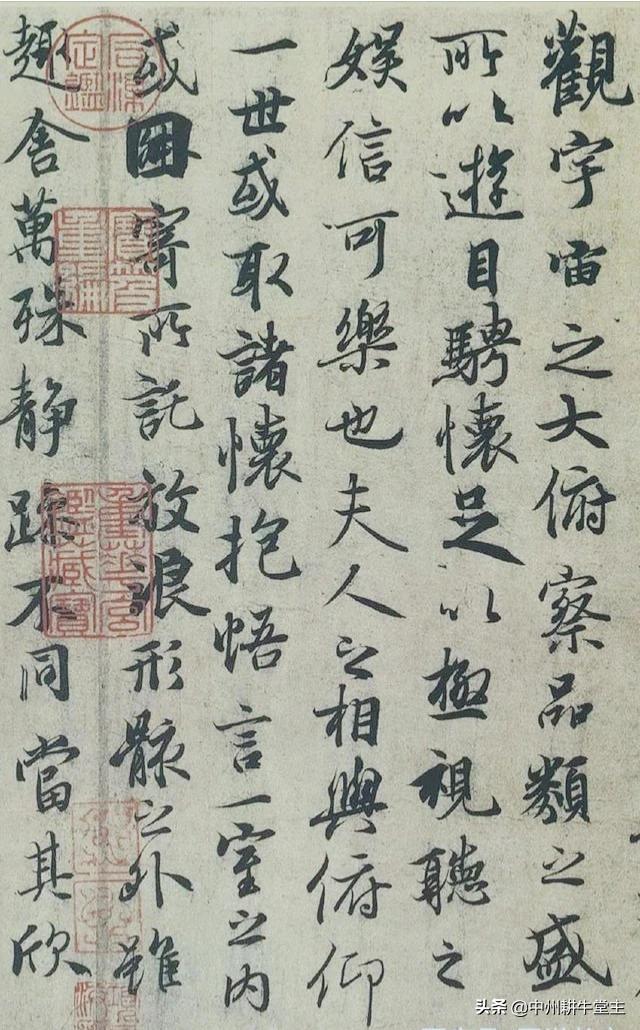 觀宇宙之大俯察品類之盛
所以遊目騁懷足以極視聽之
娛信可樂也夫人之相與俯仰
一世或取諸懷抱悟言一室之內
或因寄所託放浪形骸之外雖
趣舍萬殊静躁不同當其欣
头条 @中州耕牛堂主